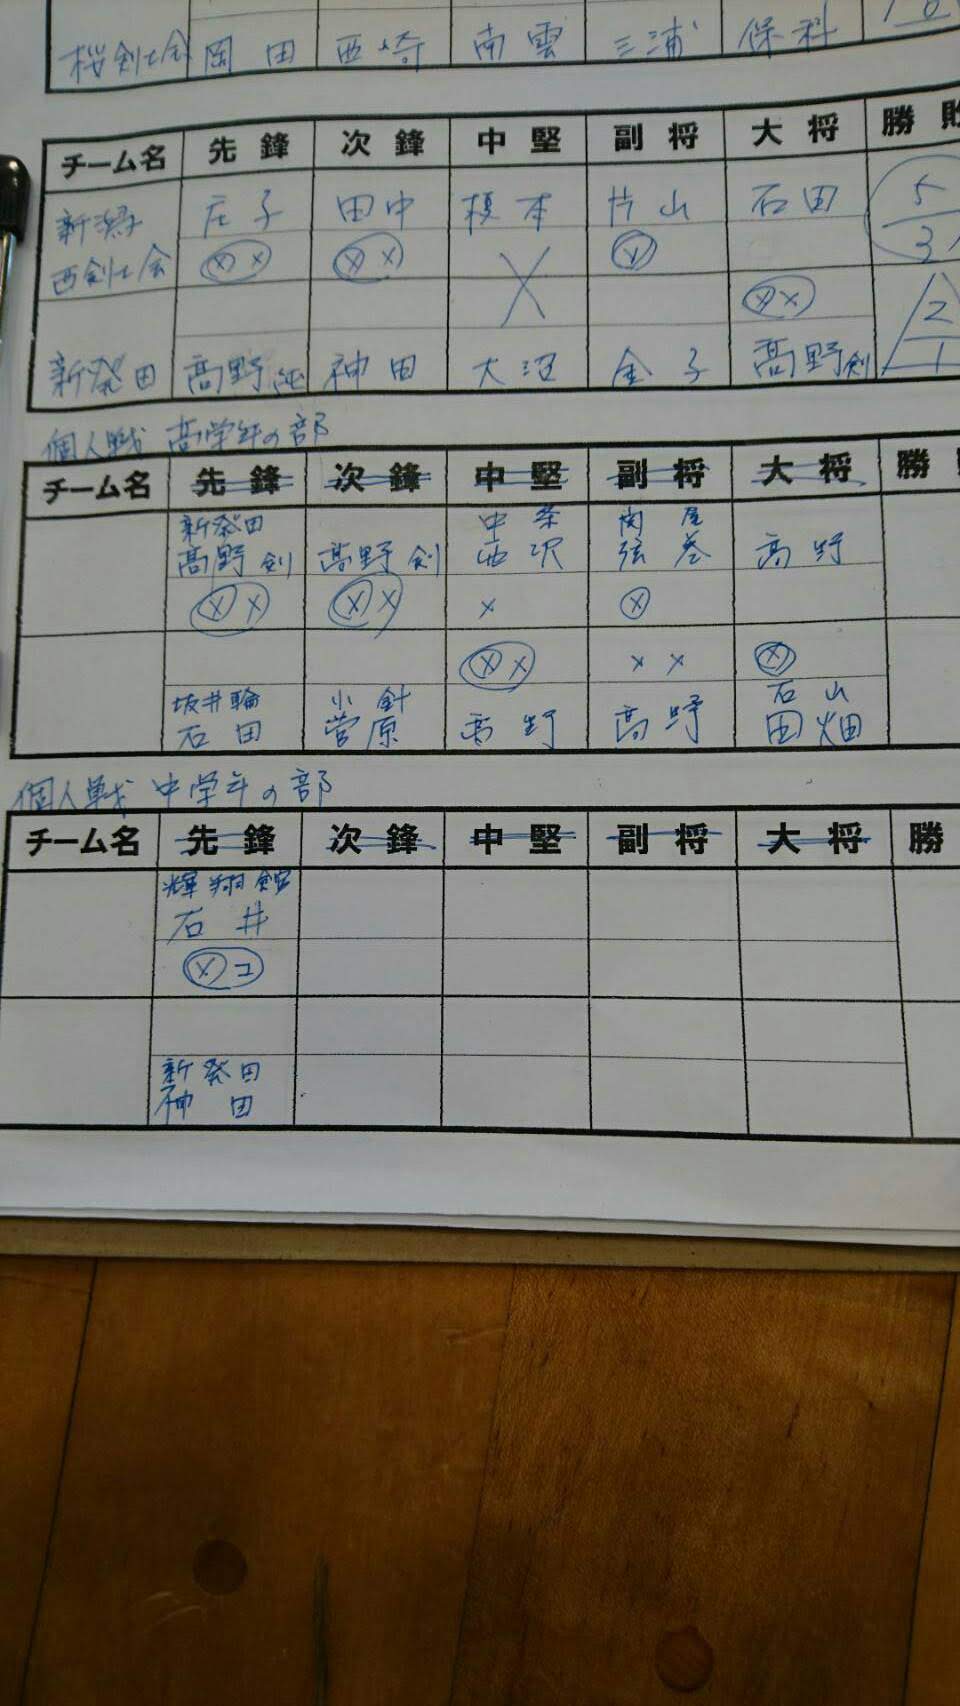 桜剣士会 岡田 西崎 南雲 三浦 保科
チーム名 先鋒 次鋒 中堅 副将 大将 勝敗
新潟 庄子 田中 榎本 片山 石田 5
西剣士会 メメ メメ メ 3
メメ 2
新発田 高野純 神田 大沼 金子 高野剣 1
個人戦 高学年の部
チーム名 先鋒 次鋒 中堅 副将 大将 勝
新発田 中条 関屋
高野剣 高野剣 西沢 弦巻 高野
メメ メメ メ メ
メメ メメ メ
坂井輪 小針 石山
石田 菅原 高野 高野 田畑
個人戦 中学年の部
チーム名 先鋒 次鋒 中堅 副将 大将 勝
輝翔館
石井
メコ
新発田
神田